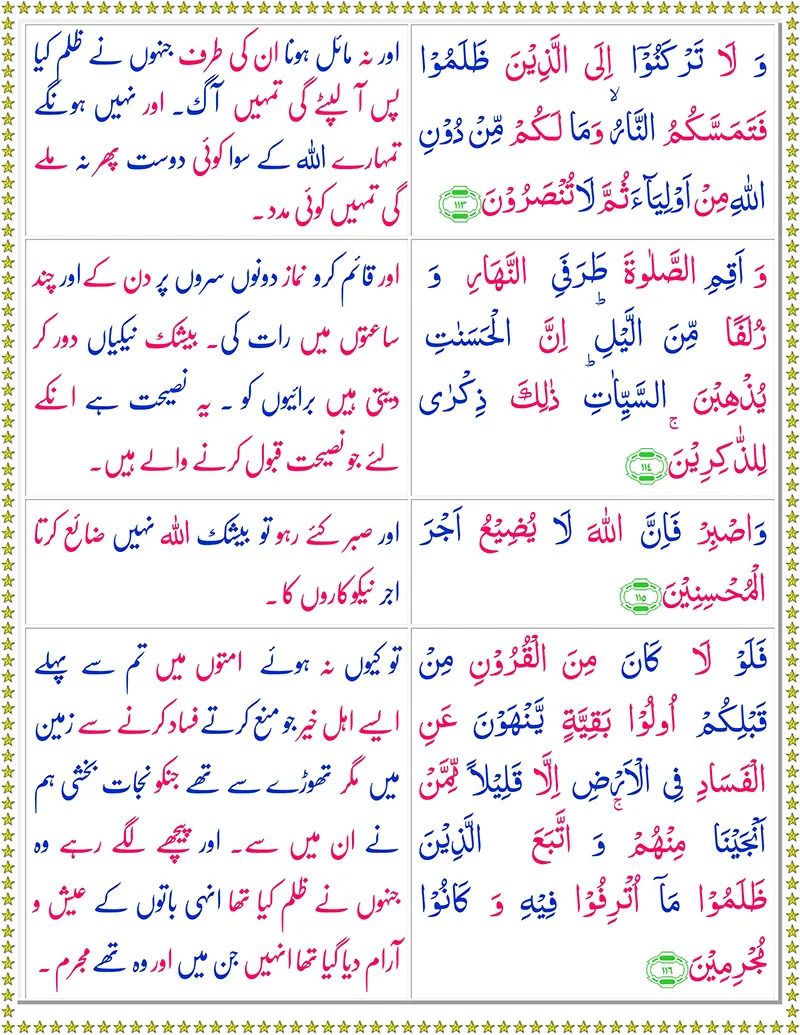 وَ لَا تَرْكَنُوْۤا اِلَى الَّذِيْنَ ظَلَمُوْا
فَتَمَسَّكُمُ النَّارُ ۙ وَمَا لَـكُمْ مِّنْ دُوْنِ
اللّٰهِ مِنْ اَوْلِيَآءَ ثُمَّ لَا تُنْصَرُوْنَ ١١٣
اور نہ مائل ہونا ان کی طرف جنہوں نے ظلم کیا
پس آ لپٹے گی تمہیں آگ۔ اور نہیں ہونگے
تمہارے اللہ کے سوا کوئی دوست پھر نہ ملے
گی تمہیں کوئی مدد۔
وَ اَقِمِ الصَّلٰوةَ طَرَفَىِ النَّهَارِ وَ
زُلَفًا مِّنَ الَّيْلِ ؕ اِنَّ الْحَسَنٰتِ
يُذْهِبْنَ السَّيِّاٰتِ ؕ ذٰلِكَ ذِكْرٰى
لِلذّٰكِرِيْنَ ۚ ١١٤
اور قائم کرو نماز دونوں سروں پر دن کے اور چند
ساعتوں میں رات کی۔ بیشک نیکیاں دور کر
دیتی ہیں برائیوں کو ۔ یہ نصیحت ہے انکے
لئے جو نصیحت قبول کرنے والے ہیں۔
وَاصْبِرْ فَاِنَّ اللّٰهَ لَا يُضِيْعُ اَجْرَ
الْمُحْسِنِيْنَ ١١٥
اور صبر کئے رہو تو بیشک اللہ نہیں ضائع کرتا
اجر نیکوکاروں کا۔
فَلَوْ لَا كَانَ مِنَ الْقُرُوْنِ مِنْ
قَبْلِكُمْ اُولُوْا بَقِيَّةٍ يَّنْهَوْنَ عَنِ
الْفَسَادِ فِى الْاَرْضِ اِلَّا قَلِيْلًا مِّمَّنْ
اَنْجَيْنَا مِنْهُمْ ۚ وَ اتَّبَعَ الَّذِيْنَ
ظَلَمُوْا مَاۤ اُتْرِفُوْا فِيْهِ وَ كَانُوْا
مُجْرِمِيْنَ ١١٦
تو کیوں نہ ہوئے امتوں میں تم سے پہلے
ایسے اہل خیر جو منع کرتے فساد کرنے سے زمین
میں مگر تھوڑے سے تھے جنکو نجات بخشی ہم
نے ان میں سے۔ اور پیچھے لگے رہے وہ
جنہوں نے ظلم کیا تھا انہی باتوں کے عیش و
آرام دیا گیا تھا انہیں جن میں اور وہ تھے مجرم۔